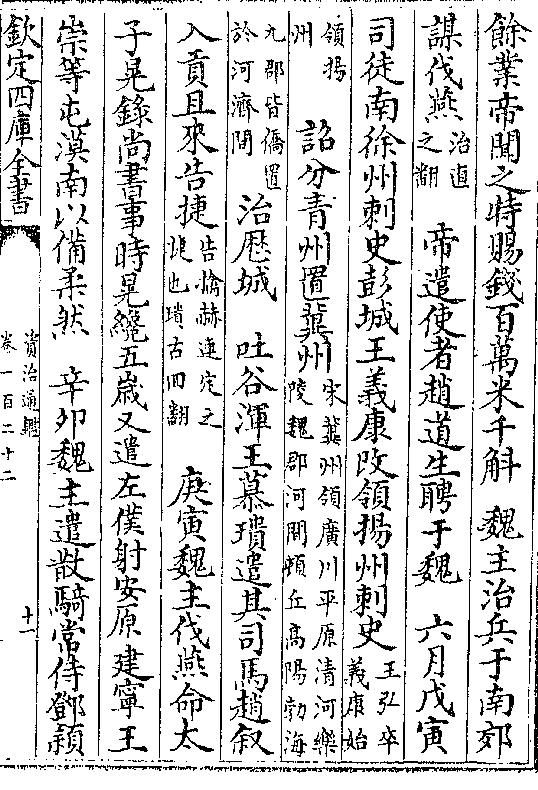 餘業帝聞之特賜錢百萬米千斛　魏主治兵于南郊
謀伐燕治直之翻　帝遣使者趙道生聘于魏　六月戊寅
司徒南徐州刺史彭城王義康改領揚州刺史王弘卒義康始
領揚州　詔分青州置冀州宋冀州領廣川平原清河樂陵魏郡河間頓丘高陽勃海
九郡皆僑置於河濟間　治歷城　吐谷渾王慕璝遣其司馬趙叙
入貢且來告捷告擒赫連定之捷也璝古回翻　庚寅魏主伐燕命太
子晃錄尚書事時晃纔五歲又遣左僕射安原建寧王
崇等屯漠南以備柔然　辛卯魏主遣散騎常侍鄧穎
欽定四庫全書
資治通鑑
卷一百二十二
十一